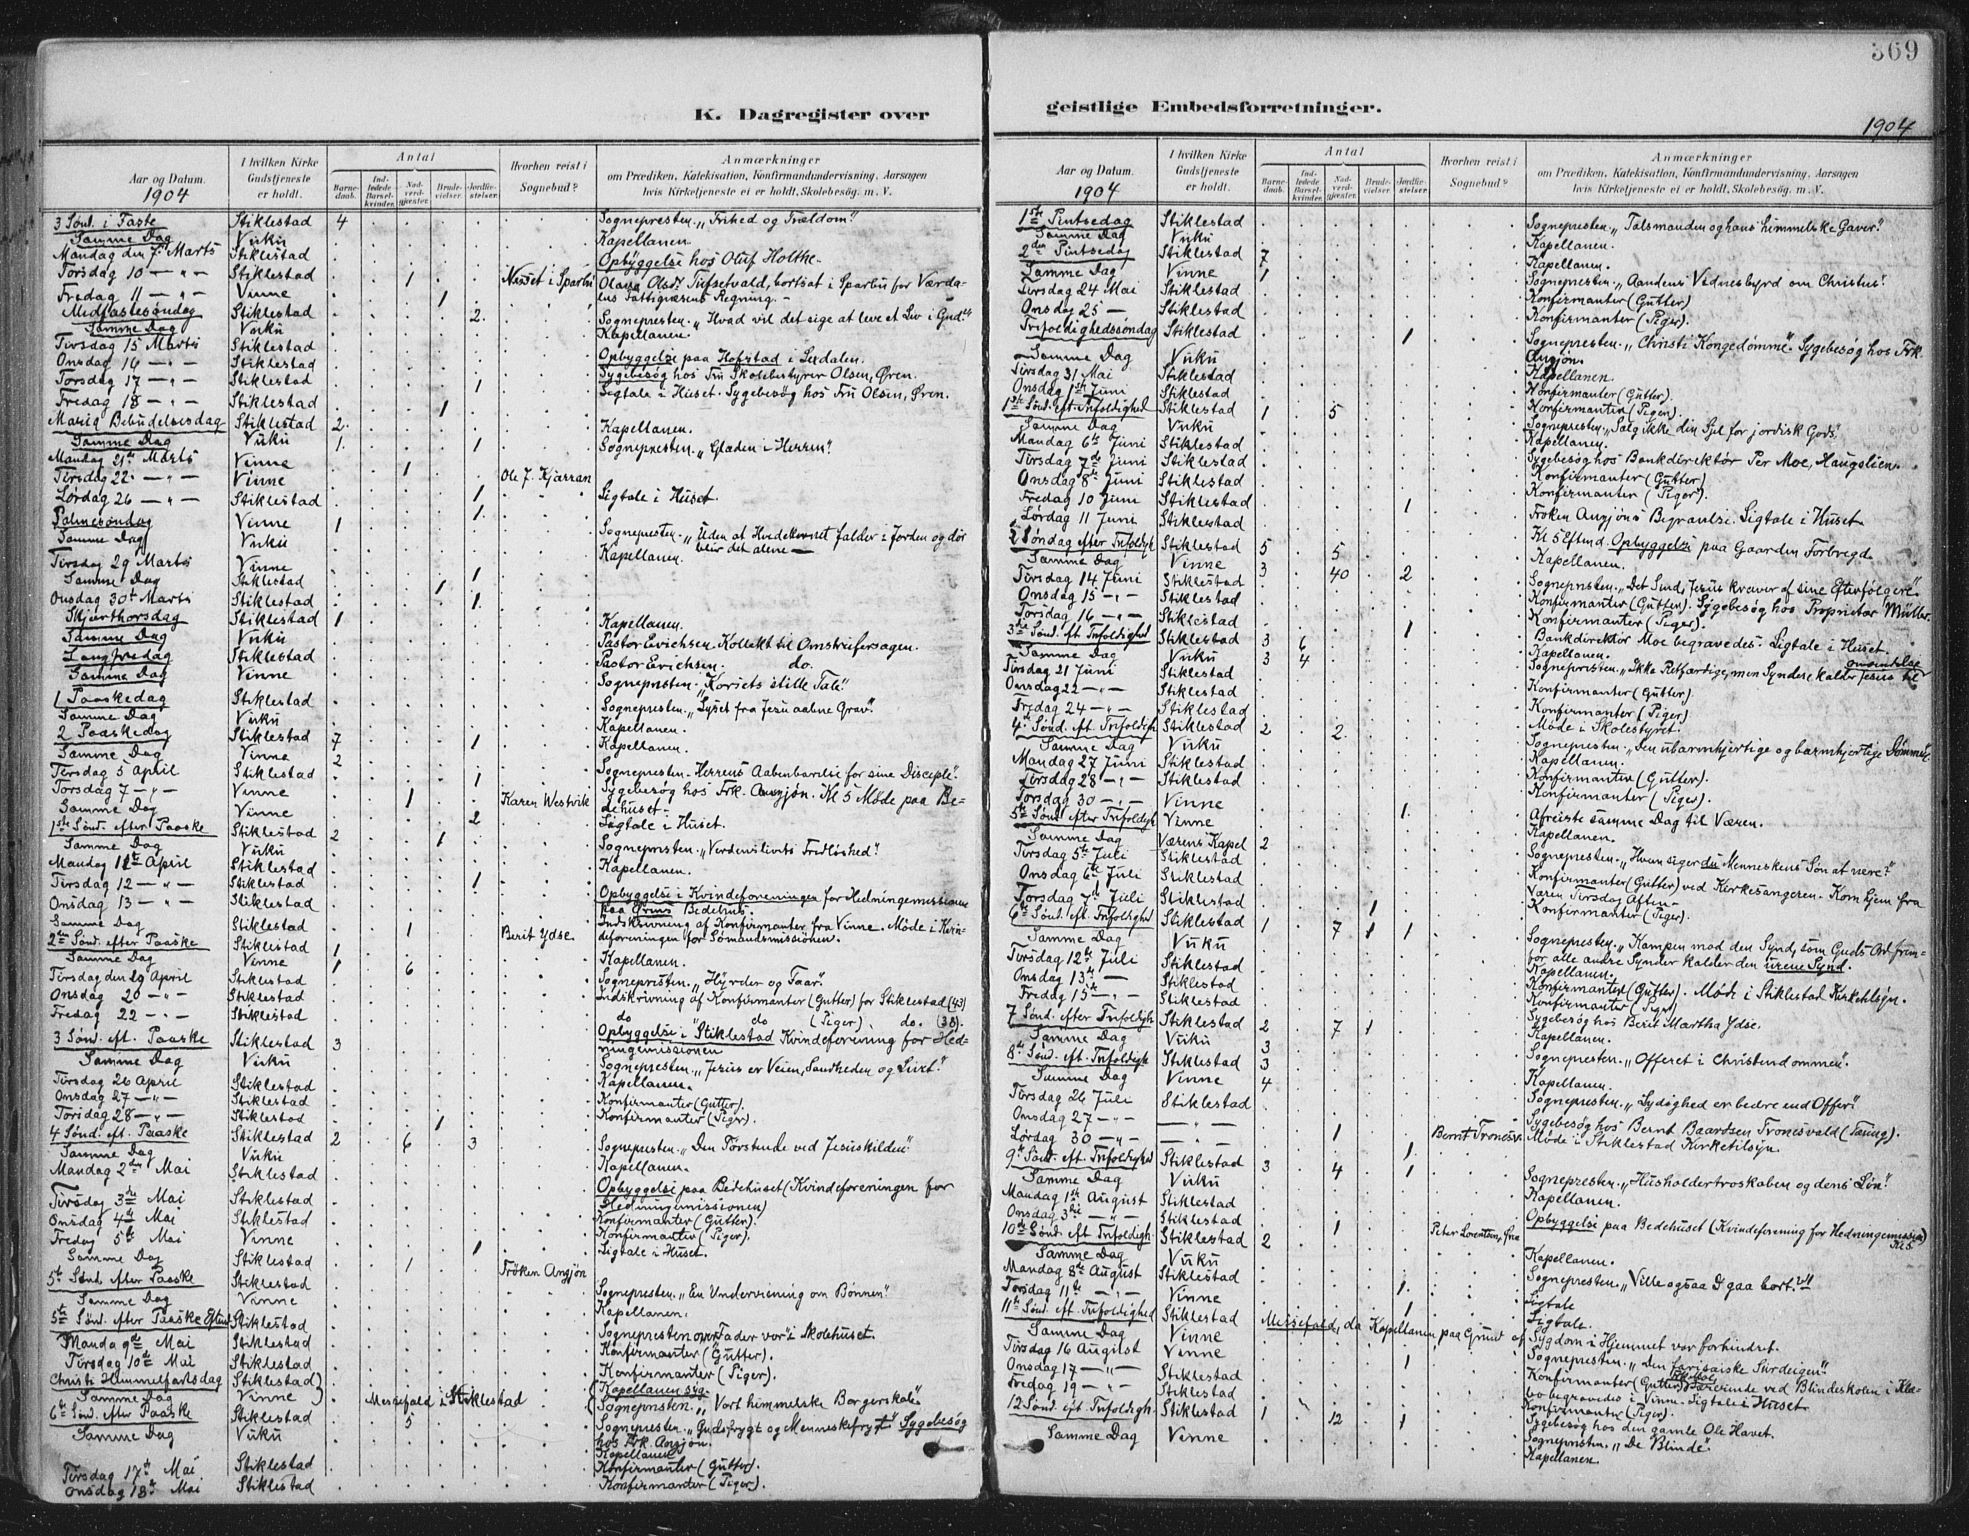 369
K. Dagregister over
geistlige Embedsforretninger.
1904
Aar og Datum.
1904
I hvilken Kirke Gudstjeneste er holdt.
Antal
Barnedaab.
Indledede Barselkvinder.
Nadverdgjester.
Brudevielser.
Jordfæstelser.
Hvorhen reist i Sognebud?
Anmærkninger
om Prædiken, Katekisation, Konfirmandundervisning, Aarsagen
hvis Kirketjeneste ei er holdt, Skolebesøg. m. V.
3 Sønd. i Faste Stiklestad 4 Sognepresten. „Frihed og Trældom“
Samme Dag Vuku Kapellanen
Mandag den 7de Marts Stiklestad Opbyggelse hos Oluf Holthe.
Torsdag 10 — „ — Stiklestad 1
Fredag 11 — „ — Vinne 1
Midfastesøndag Stiklestad 2. Sognepresten. „Hvad vil det sige at leve et Liv i Gud.“
Samme Dag Vuku Kapellanen.
Tirsdag 15 Marts Stiklestad Opbyggelse paa Hofstad i Leirdalen.
Onsdag 16 — „ — Stiklestad Sygebesøg hos Fru Skolebestyrer Olsen, Øren.
Torsdag 17 — „ — Stiklestad 1 Ligtale i Huset. Sygebesøg hos Fru Olsen, Øren.
Fredag 18 — „ — Stiklestad 1
Mariæ Bebudelsesdag Stiklestad 2. Kapellanen.
Samme Dag Vuku 1. 1 Sognepresten. „Glæden i Herren“
Mandag 21de Marts Vinne
Tirsdag 22. — „ — Vinne 1 Ole J. Kjærran
Lørdag 26 — „ — Stiklestad 1 Ligtale i Huset.
Palmesøndag Vinne 1 1. Sognepresten. „Uden at Hvedekornet falder i Jorden og dør
blir det alene —
Samme Dag Vuku Kapellanen.
Tirsdag 29 Marts Vinne 1
Samme Dag Stiklestad 1
Onsdag 30te Marts Stiklestad 1.
Skjærthorsdag Stiklestad 1 Kapellanen.
Samme Dag Vuku Pastor Erichsen. Kollekt til Omstreifersagen.
Langfredag Stiklestad Pastor Erichsen. do.
Samme Dag Vinne Sognepresten. „Korsets stille Tale“
1 Paaskedag Stiklestad Sognepresten. „Lyset fra Jesu aabne Grav“.
Samme Dag Vuku Kapellanen.
2 Paaskedag Stiklestad 7 1 Kapellanen.
Samme Dag Vinne 2 Sognepresten. Herrens Aabenbarelse for sine Disciple“.
Tirsdag 5 April Stiklestad 1 Sygebesøg hos Frk. Angjøn. Kl 5 Møde paa Bedehuset.
Torsdag 7 — „ — Vinne 1 Karen Westvik
Samme Dag Vinne 2 Ligtale i Huset.
1ste Sønd. efter Paaske Stiklestad 2 1 Sognepresten. „Verdenslivets Fredløshed“.
Samme Dag Vuku Kapellanen.
Mandag 11te April Stiklestad Opbyggelse i Kvindeforeningen for Hedningemissionen
paa Ørens Bedehus.
Tirsdag 12 — „ — Stiklestad 1
Onsdag 13 — „ — Stiklestad Indskrivning af Konfirmanter fra Vinne. Møde i Kvindeforeningen for Sømandsmissionen.
Samme Dag Stiklestad 1 Berit Ydse
2den Sønd. efter Paaske Stiklestad 1 Kapellanen.
Samme Dag Vinne 1 6 Sognepresten. „Hyrder og Faar“.
Tirsdag den 19 April Stiklestad Indskrivning af Konfirmanter (Gutter) for Stiklestad (43)
Onsdag 20 — „ — Stiklestad do do (Piger). do. (38).
Fredag 22 — „ — Stiklestad Opbyggelse i Stiklestad Kvindeforening for Hedningemissionen
3 Sønd. eft. Paaske Stiklestad 3 Sognepresten. „Jesus er Veien, Sandheden og Livet“
Samme Dag Vuku Kapellanen.
Tirsdag 26 April Stiklestad Konfirmanter (Gutter).
Onsdag 27 — „ — Stiklestad Konfirmanter (Piger).
Torsdag 28 — „ — Stiklestad 1
4 Sønd. eft. Paaske Stiklestad 2 6 3 Sognepresten. „Den Tørstende ved Jesuskilden“
Samme Dag Vuku Kapellanen.
Mandag 2den Mai Stiklestad Opbyggelse paa Bedehuset (Kvindeforeningen for
Hedningemissionen)
Tirsdag 3de Mai Stiklestad Konfirmanter (Gutter).
Onsdag 4de Mai Stiklestad Konfirmanter (Piger).
Fredag 5te Mai Vinne 1 Ligtale i Huset.
Samme Dag Stiklestad 1 Frøken Angjøn
5te Sønd. efter Paaske Stiklestad Sognepresten. „En Undervisning om Bønnen“
Samme Dag Vinne Kapellanen.
5te Sønd. efter Paaske Efterm. Stiklestad Sognepresten over „Fader vor“ i Skolehuset.
Mandag 9de Mai Stiklestad Konfirmanter (Gutter).
Tirsdag 10de Mai Stiklestad Konfirmanter (Piger).
Christi Himmelfartsdag Stiklestad Messefald i Stiklestad Kapellanen syg.
Samme Dag Vinne Sognepresten. „Vort himmelske Borgerskab“
6te Sønd. efter Paaske Stiklestad 5 Sognepresten. „Gudsfrygt og Menneskefrygt“ Sygebesøg
hos Frk. Angjøn.
Samme Dag Vuku Kapellanen
Tirsdag 17de Mai. Stiklestad Konfirmanter (Gutter).
Onsdag 18de Mai Stiklestad Konfirmanter (Piger).
Aar og Datum.
1904
I hvilken Kirke Gudstjeneste er holdt.
Antal
Barnedaab.
Indledede Barselkvinder.
Nadverdgjester.
Brudevielser.
Jordfæstelser.
Hvorhen reist i Sognebud?
Anmærkninger
om Prædiken, Katekisation, Konfirmandundervisning, Aarsagen
hvis Kirketjeneste ei er holdt, Skolebesøg. m. V.
1ste Pintsedag Stiklestad Sognepresten. „Talsmanden og hans himmelske Gaver“.
Samme Dag Vuku Kapellanen.
2den Pintsedag Stiklestad 7 Kapellanen.
Samme Dag Vinne 1 Sognepresten. „Aandens Vidnesbyrd om Christus“
Tirsdag 24 Mai Stiklestad Konfirmanter (Gutter)
Onsdag 25 — Stiklestad Konfirmanter (Piger).
Trefoldighedssøndag Stiklestad 1 Sognepresten. „Christi Kongedømme“. Sygebesøg hos Frk.
Angjøn.
Samme Dag Vuku Kapellanen.
Tirsdag 31 Mai Stiklestad Konfirmanter (Gutter).
Onsdag 1ste Juni Stiklestad Konfirmanter (Piger).
1ste Sønd. eft. Trefoldighed Stiklestad 1 5 Sognepresten. „Sælg ikke din Sjel for jordisk Gods“.
Samme Dag Vuku Kapellanen.
Mandag 6te Juni Stiklestad Sygebesøg hos Bankdirektør Per Moe, Haugslien.
Tirsdag 7de Juni Stiklestad Konfirmanter (Gutter)
Onsdag 8de Juni Stiklestad Konfirmanter (Piger).
Fredag 10 Juni Stiklestad 1 Frøken Angjøns Begravelse. Ligtale i Huset.
Lørdag 11 Juni Stiklestad Kl 5 Efterm. Opbyggelse paa Gaarden Forbregd.
2 Søndag efter Trefoldigh. Stiklestad 5 5 Kapellanen.
Samme Dag Vinne 3 40 2 Sognepresten. „Det Sind, Jesus kræver af sine Efterfølgere“.
Tirsdag 14 Juni Stiklestad Konfirmanter (Gutter). Sygebesøg hos Proprietær Müller.
Onsdag 15 — „ — Stiklestad Konfirmanter (Piger).
Torsdag 16 — „ — Stiklestad 1 Bankdirektør Moe begravedes. Ligtale i Huset.
3de Sønd. eft. Trefoldighed Stiklestad 3 6 Kapellanen.
Samme Dag Vuku 3 4 Sognepresten. „Ikke Retfærdige, men Syndere kalder Jesus til
omvendelse
Tirsdag 21 Juni Stiklestad Konfirmanter (Gutter)
Onsdag 22 — „ — Stiklestad Konfirmanter (Piger)
Fredag 24 — „ — Stiklestad Møde i Skolestyret.
4de Sønd. eft. Trefoldigh. Stiklestad 2 2 Sognepresten. „Den ubarmhjertige og barmhjertige Dømmesyge
Samme Dag Vuku Kapellanen.
Mandag 27 Juni Stiklestad Konfirmanter (Gutter).
Tirsdag 28 — „ — Stiklestad Konfirmanter (Piger).
Torsdag 30 — „ — Vinne 1 Afreiste samme Dag til Væren.
5te Sønd. efter Trefoldigh. Vinne Kapellanen.
Samme Dag Værens Kapel 2 Sognepresten. „Hvem siger du Menneskens Søn at være?“
Tirsdag 5te Juli Stiklestad Konfirmanter (Gutter) ved Kirkesangeren. Kom hjem fra
Væren Tirsdag Aften.
Onsdag 6te Juli Stiklestad Konfirmanter (Piger).
Torsdag 7de Juli Stiklestad 1
6te Sønd. eft. Trefoldighed Stiklestad 1 7 1 1 Sognepresten. „Kampen mod den Synd, som Guds Ord fremfor alle andre Synder kalder den urene Synd.
Samme Dag Vuku Kapellanen.
Tirsdag 12te Juli Stiklestad Konfirmanter (Gutter). Møde i Stiklestad Kirketilsyn.
Onsdag 13de — Stiklestad Konfirmanter (Piger)
Fredag 15de — „ — Stiklestad Sygebesøg hos Berit Martha Ydse.
7 Sønd. efter Trefoldigh. Stiklestad 2 7 1 Kapellanen.
Samme Dag Vuku 3 Sognepresten. „Offeret i Christendommen“.
8de Sønd. eft. Trefoldigh. Stiklestad 3 Kapellanen.
Samme Dag Vinne 4 Sognepresten. „Lydighed er bedre end Offer“.
Tirsdag 26 Juli Stiklestad Sygebesøg hos Bernt Baardsen Tronesvald (Tæring).
Onsdag 27 — „ — — „ — Møde i Stiklestad Kirketilsyn.
Lørdag 30 — „ — — „ — 1 1. Bernt Tronesv.
9de Sønd. eft. Trefoldighed Stiklestad 3 4 1 Sognepresten. „Husholdertroskaben og dens Løn“.
Samme Dag Vuku Kapellanen.
Mandag 1ste August Stiklestad Opbyggelse paa Bedehuset (Kvindeforening for Hedningemission)
Kl 5.
Onsdag 3die — „ — Stiklestad 1
10de Sønd. eft. Trefoldigh. Stiklestad 2 Kapellanen.
Samme Dag Vuku Sognepresten. „Ville ogsaa I gaa bort?“
Mandag 8de August Stiklestad 1. Ligtale
Torsdag 11te — „ — Vinne 1 Ligtale.
11te Sønd. eft. Trefoldighed Stiklestad Messefald, da Kapellanen paa Grund af Sygdom i Hjemmet var forhindret.
Samme Dag Vinne Sognepresten. „Den farisæiske Surdeigen“.
Tirsdag 16 August Vinne 1
Onsdag 17 — „ — Stiklestad Konfirmanter (Piger).
Fredag 19 — „ — Stiklestad Sygebesøg hos den gamle Ole Havet.
12 Sønd. eft. Trefoldigh. Stiklestad 1 12 1 Sognepresten. „De Blinde“
Samme Dag Vinne Kapellanen.